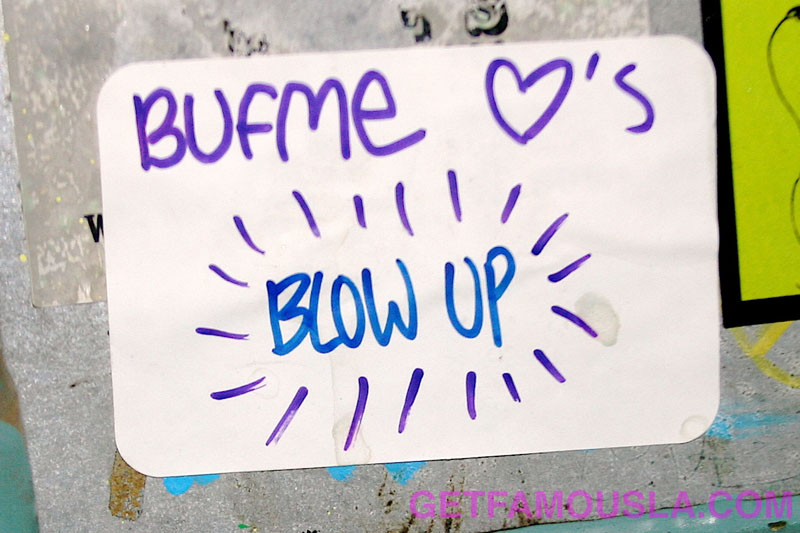 BUFME ♡'s
BLOW UP
GETFAMOUSLA.COM